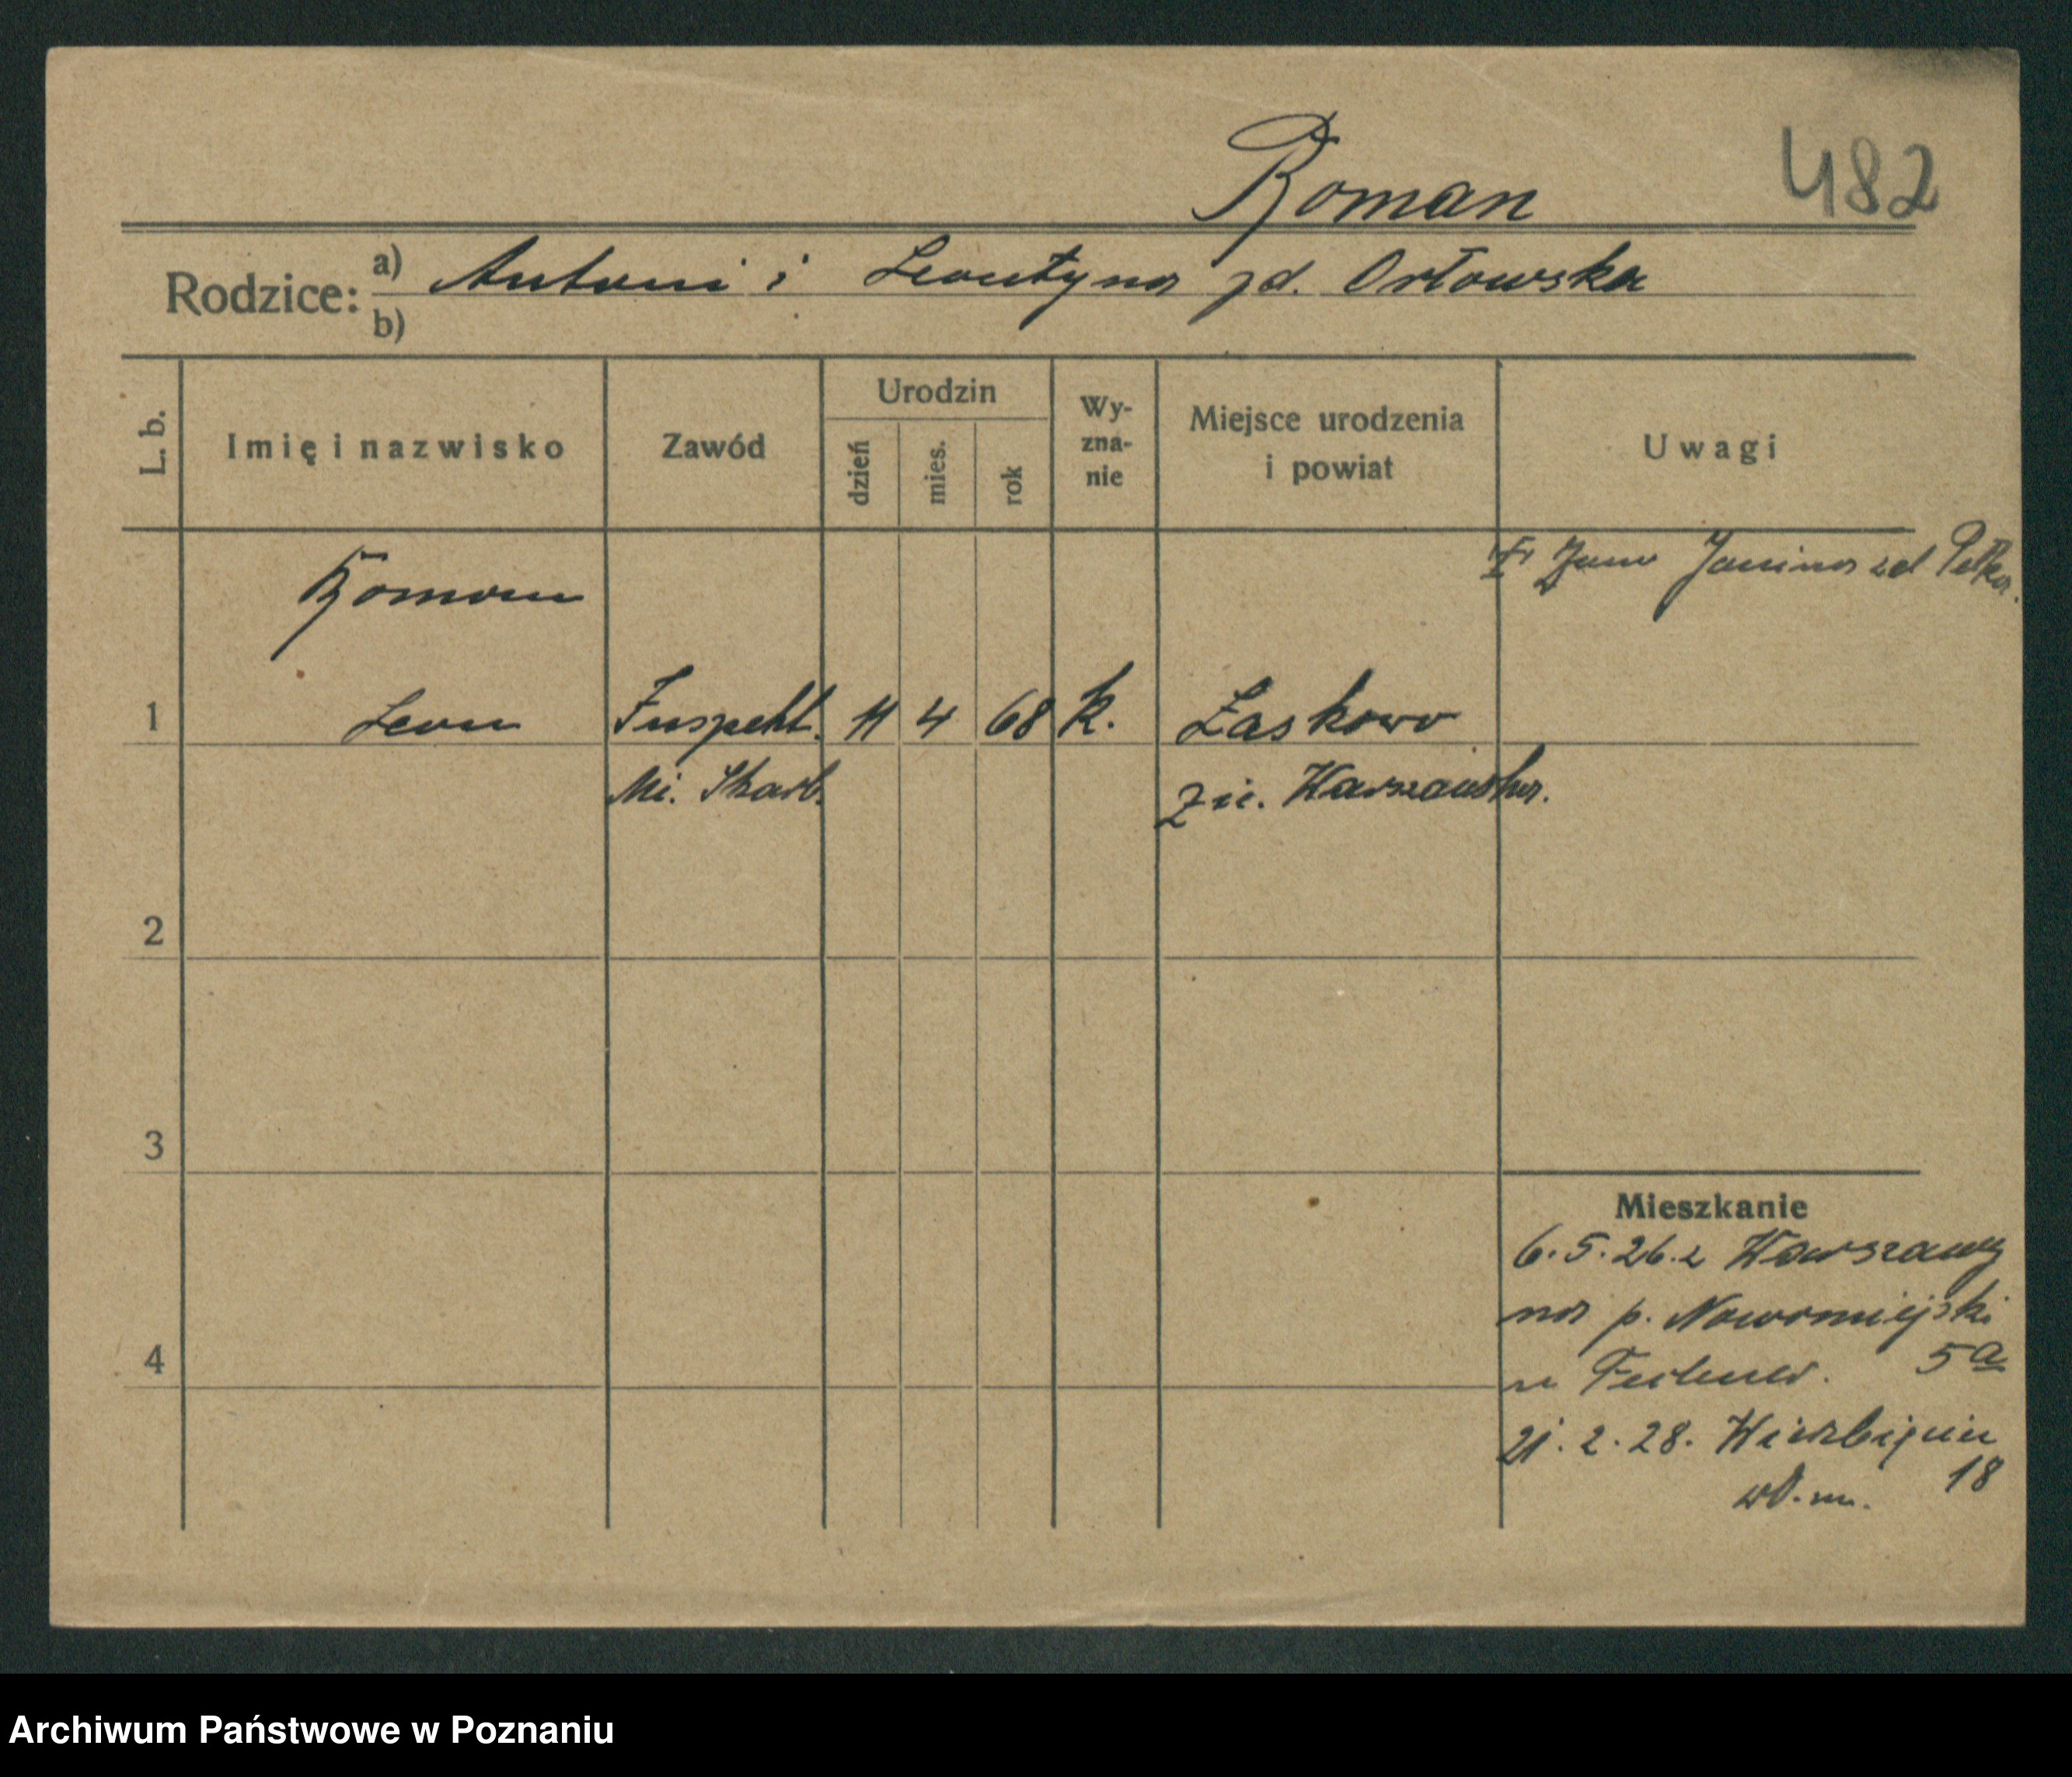 Roman
482
Rodzice: a) Antoni i Leontyna zd. Orłowska
b)
L. b.
Imię i nazwisko
Zawód
Urodzin
dzień
mies.
rok
Wy-
zna-
nie
Miejsce urodzenia
i powiat
Uwagi
Żona Janina zd
Roman
1 Leon Inspekt. 11 4 68 k. Laskowo
Mi. Skarb. Zie. Warszawska.
2
3
4
Mieszkanie
6. 5. 26. z Warszawy
na p. Nowomiejski
5a
21. 2. 28. Wierzbięcin
18